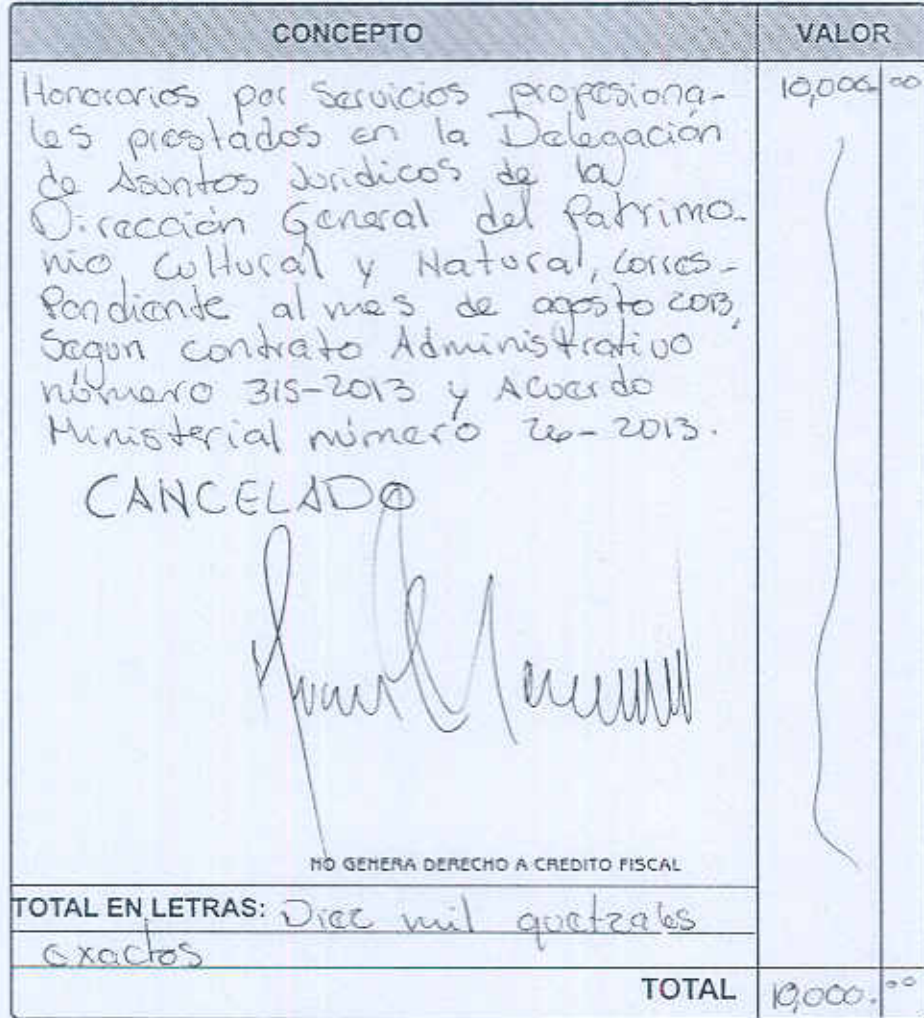 CONCEPTO VALOR
Honorarios por servicios profesiona- 10,000.00
les prestados en la Delegación
de Asuntos Jurídicos de la
Dirección General del Patrimo-
nio, Cultural y Natural, corres-
pondiente al mes de agosto 2013,
Segun contrato Administrativo
número 315-2013 y Acuerdo
Ministerial número 26-2013.
CANCELADO
NO GENERA DERECHO A CREDITO FISCAL
TOTAL EN LETRAS: Diez mil quetzales
exactos
TOTAL 10,000.00